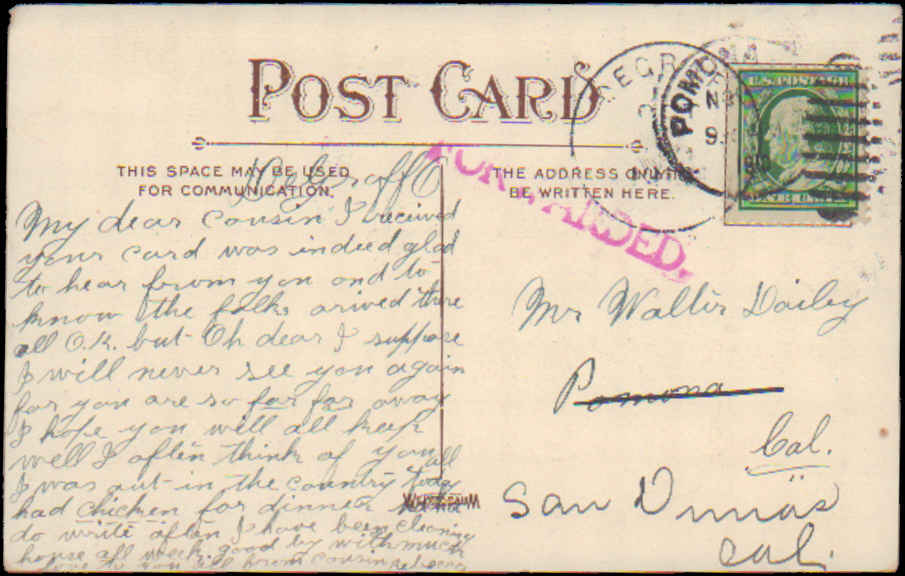 POST CARD
THIS SPACE MAY BE USED
FOR COMMUNICATION.
THE ADDRESS ONLY
BE WRITTEN HERE.
FORWARDED.
POMONA
U.S. POSTAGE
My dear cousin I recived
your card was indeed glad
to hear from you and to
know the folks arived there
all O.K. but Oh dear I suppose
I will never see you again
for you are so far far away
I hope you will all keep
well I often think of you all
I was out in the country today
had chicken for dinner
do write often I have been cleaning
house all week good by with much
love to you all from cousin Rebecca
Mr Walter Dailey
Pomona
Cal.
San Dimas
Cal.